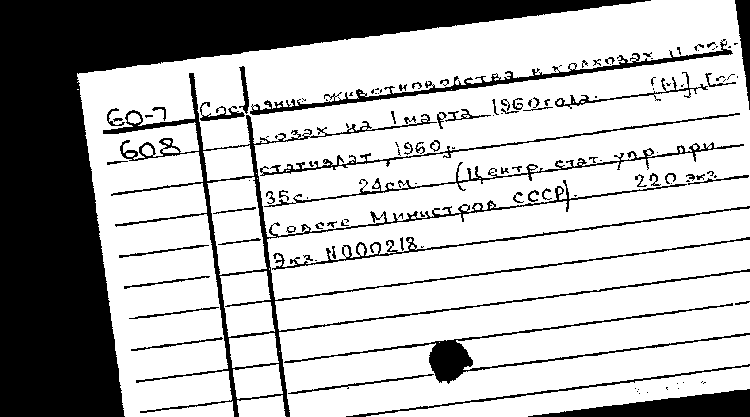 60-7 Состояние животноводства в колхозах и сов-
608 хозах на 1 марта 1960 года. [М.], [Гос-
статиздат, 1960].
35 с. 24 см. (Центр. стат. упр. при
Совете Министров СССР). 220 экз.
Экз. N000218.